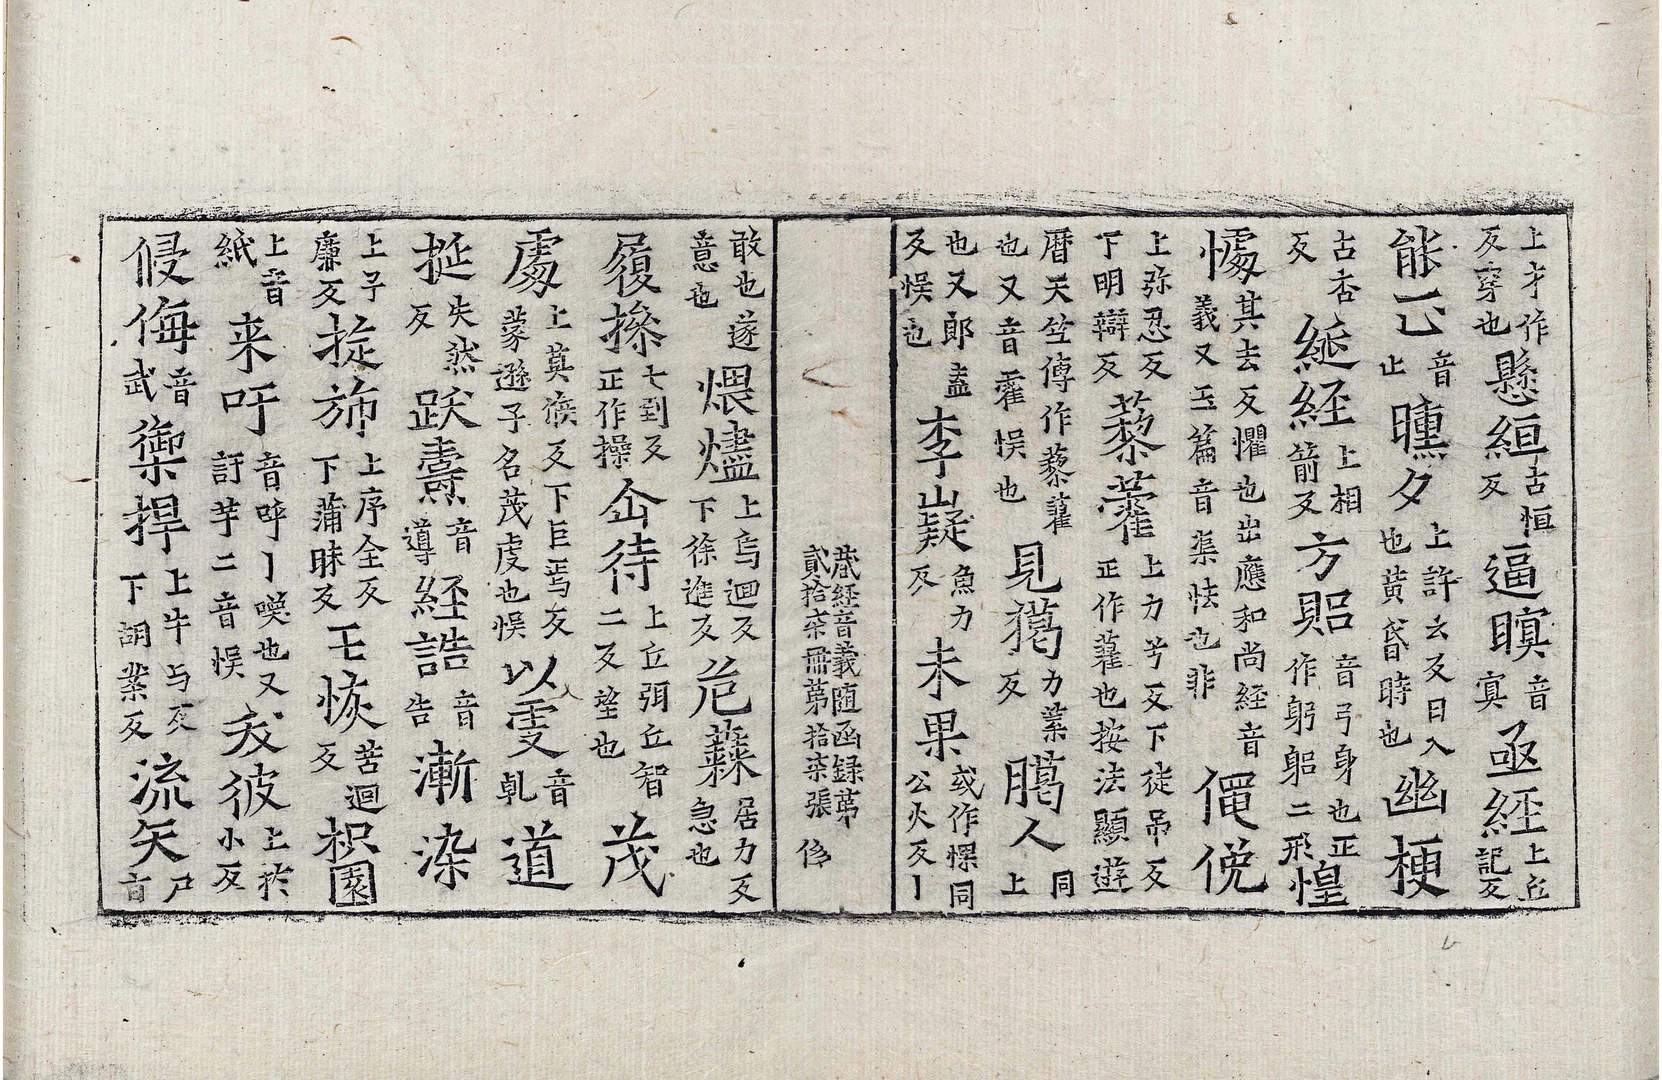 上才作反穿也懸絙古恒反逼瞑音寘亟經上丘記反
能㠯音止曛夕上許云反日入也黄昏時也幽梗
古杏反綖經上相箭反方躳音弓身也正作躬躳二形惶
懅其去反懼也出應和尚經音義又玉篇音渠怯也非僶俛
上弥忍反下明辯反藜藿上力兮反下徒吊反正作藋也按法顯遊
曆天竺傳作藜藿也又音霍悮也見獦力業反臈人同上
也又郎盍反悮也李嶷魚力反未果或作惈同公火反丨
藏經音義随函録第貳拾柒冊第拾柒張
敢也遂意也煨燼上烏迴反下徐進反危蕀居力反急也
履摻七到反正作操峹待上丘弭丘智二反望也茂
虔上莫候反下巨焉反蒙遜子名茂虔也悮以雯音軋道
挻失然反跃燾音導經誥音告漸染
上子廉反㨗斾上序全反下蒲昧反王恢苦迴反枳園
上音紙来吁音呼丨嘆也又訏芋二音悮犮彼上於小反
侵侮音武禦捍上牛与反下胡業反流矢尸音